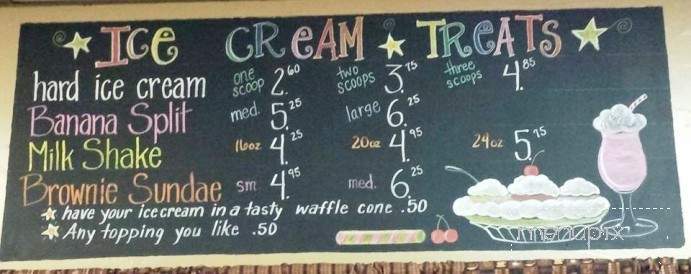 Ice Cream Treats
hard ice cream one scoop 2.60 two scoops 3.75 three scoops 4.85
Banana Split med. 5.25 large 6.25
Milk Shake 16oz 4.25 20oz 4.95 24oz 5.75
Brownie Sundae sm 4.95 med. 6.25
have your ice cream in a tasty waffle cone .50
Any topping you like .50
menupix